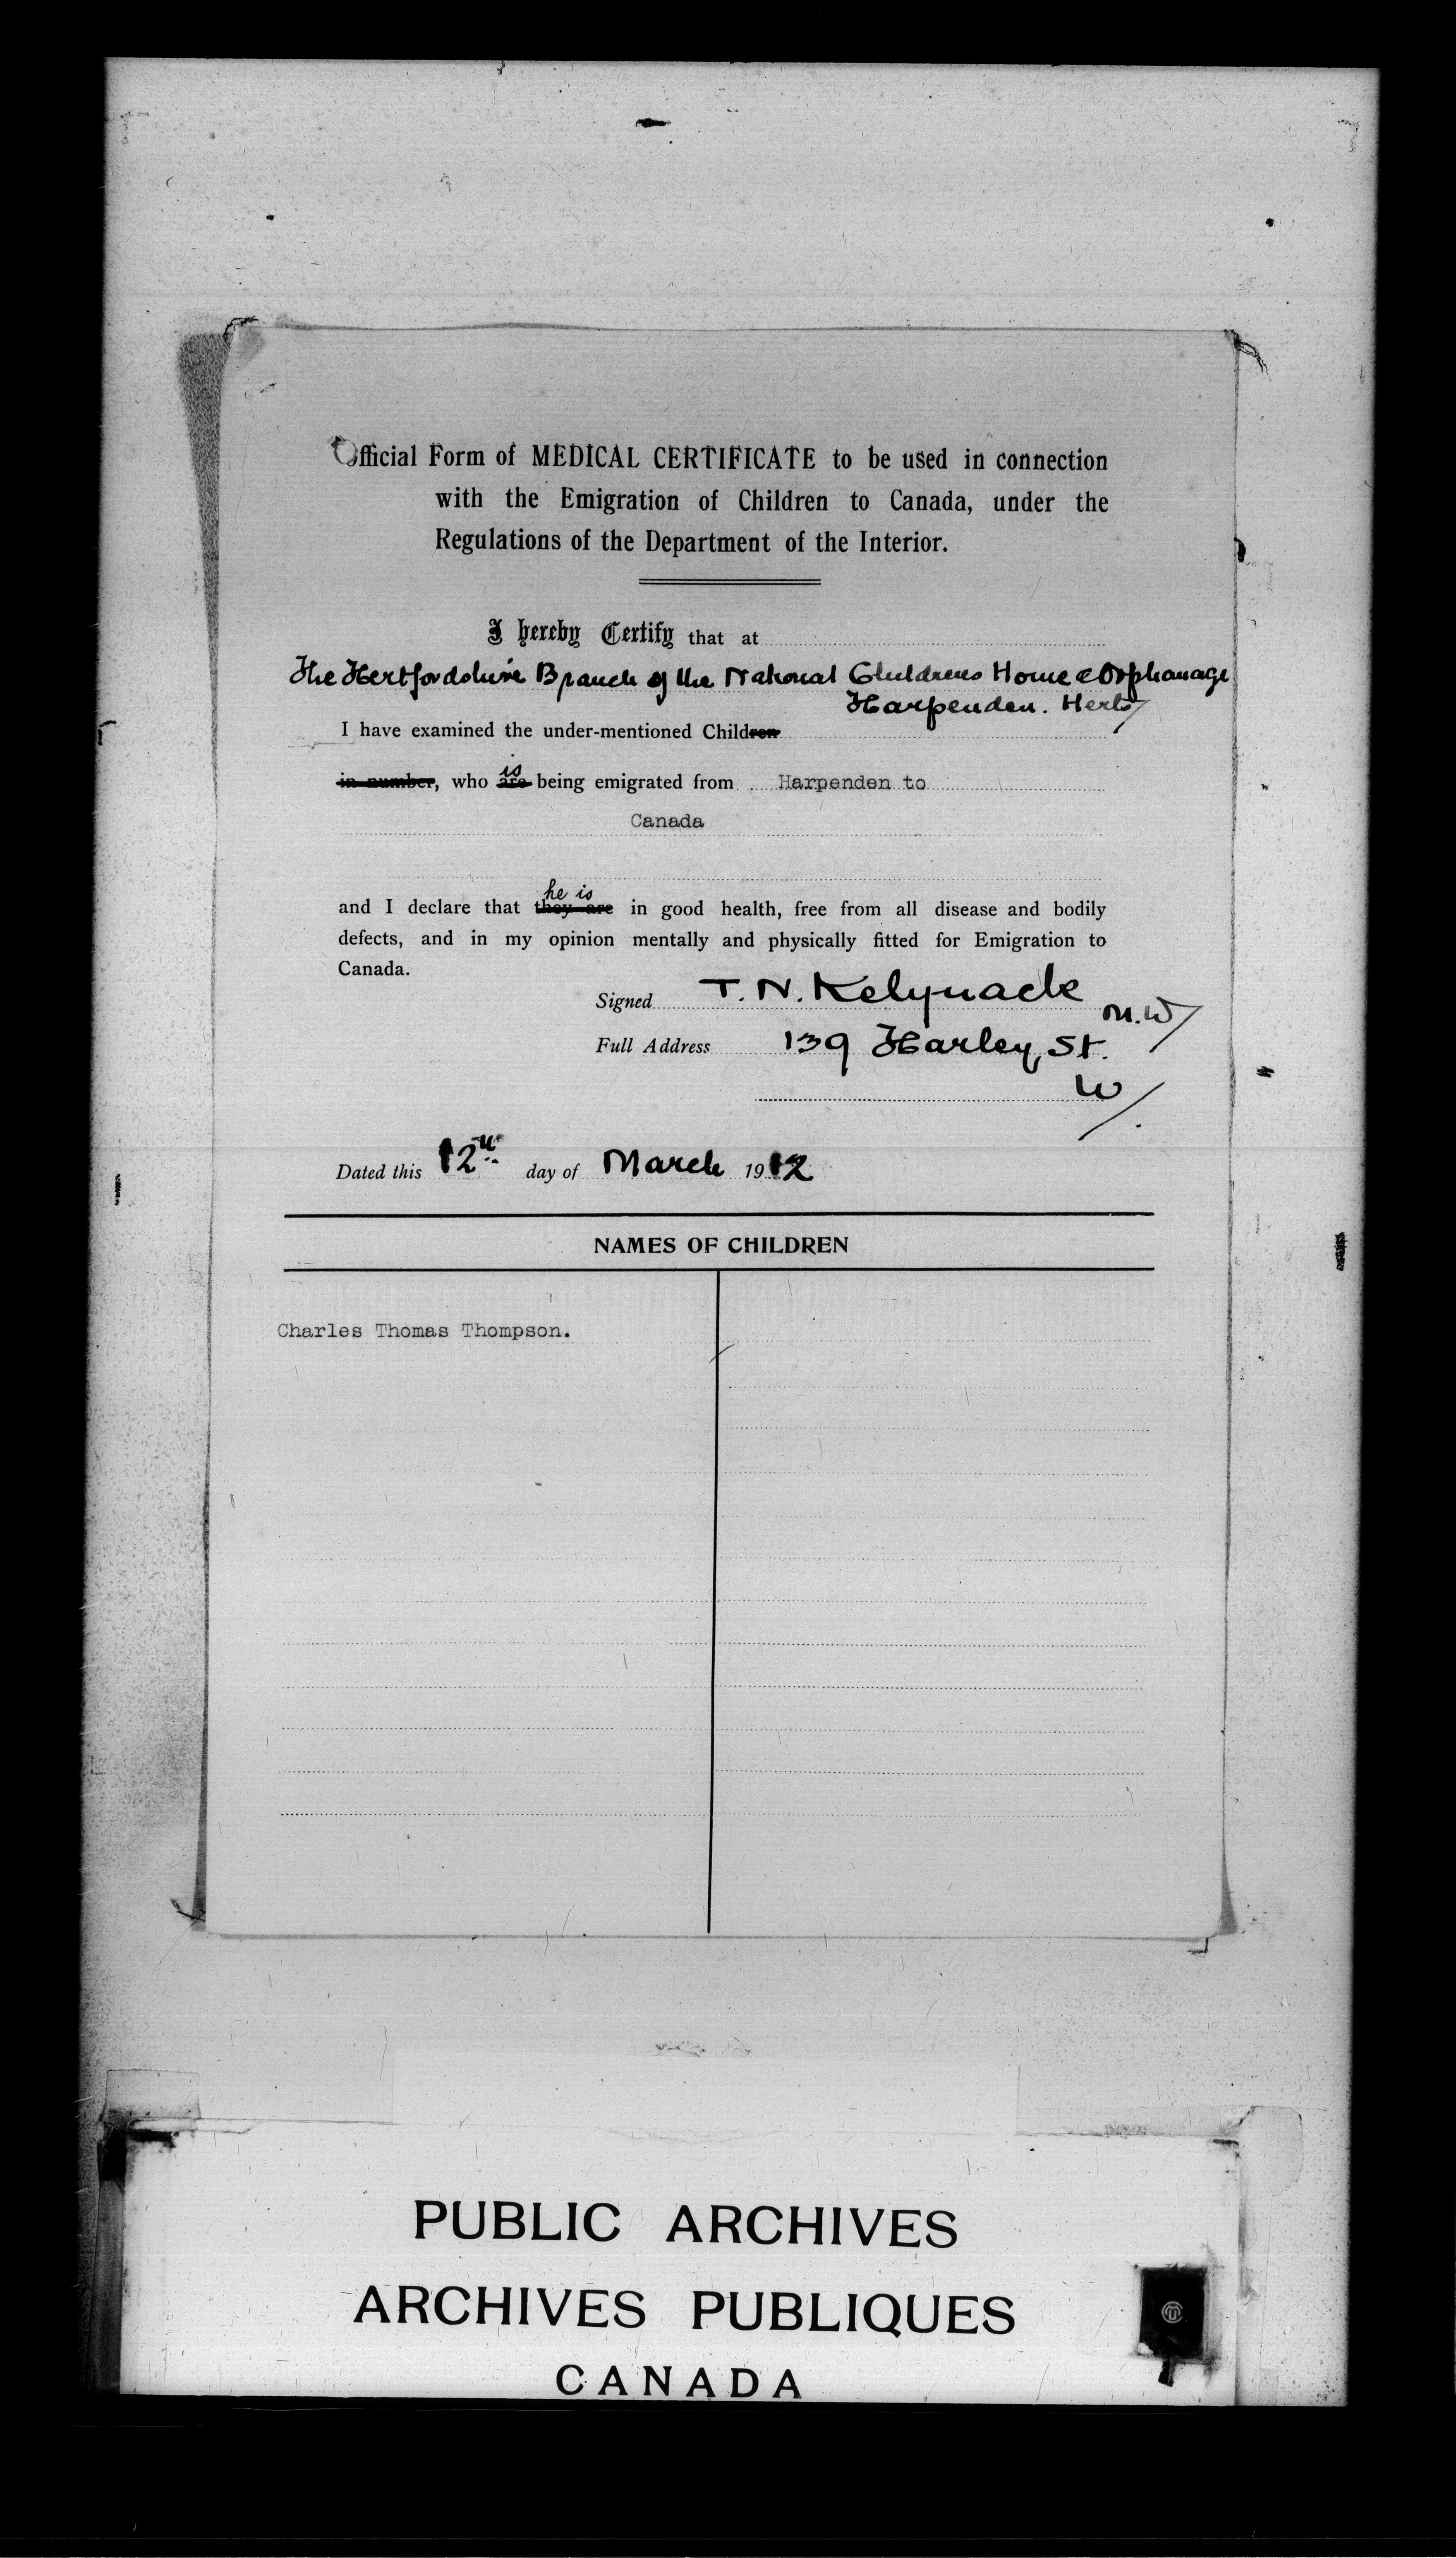 Official Form of MEDICAL CERTIFICATE to be used in connection
with the Emigration of Children to Canada, under the
Regulations of the Department of the Interior.
I hereby Certify that at
The Hertfordshire Branch of the National Childrens Home & Orphanage
Harpenden. Herts
I have examined the under-mentioned Children
is
in number, who are being emigrated from Harpenden to
Canada
he is
and I declare that they are in good health, free from all disease and bodily
defects, and in my opinion mentally and physically fitted for Emigration to
Canada.
Signed T. N. Kelynack
Full Address 139 Harley, St.
W
Dated this 12th day of March 1912
NAMES OF CHILDREN
Charles Thomas Thompson.
PUBLIC ARCHIVES
ARCHIVES PUBLIQUES
CANADA